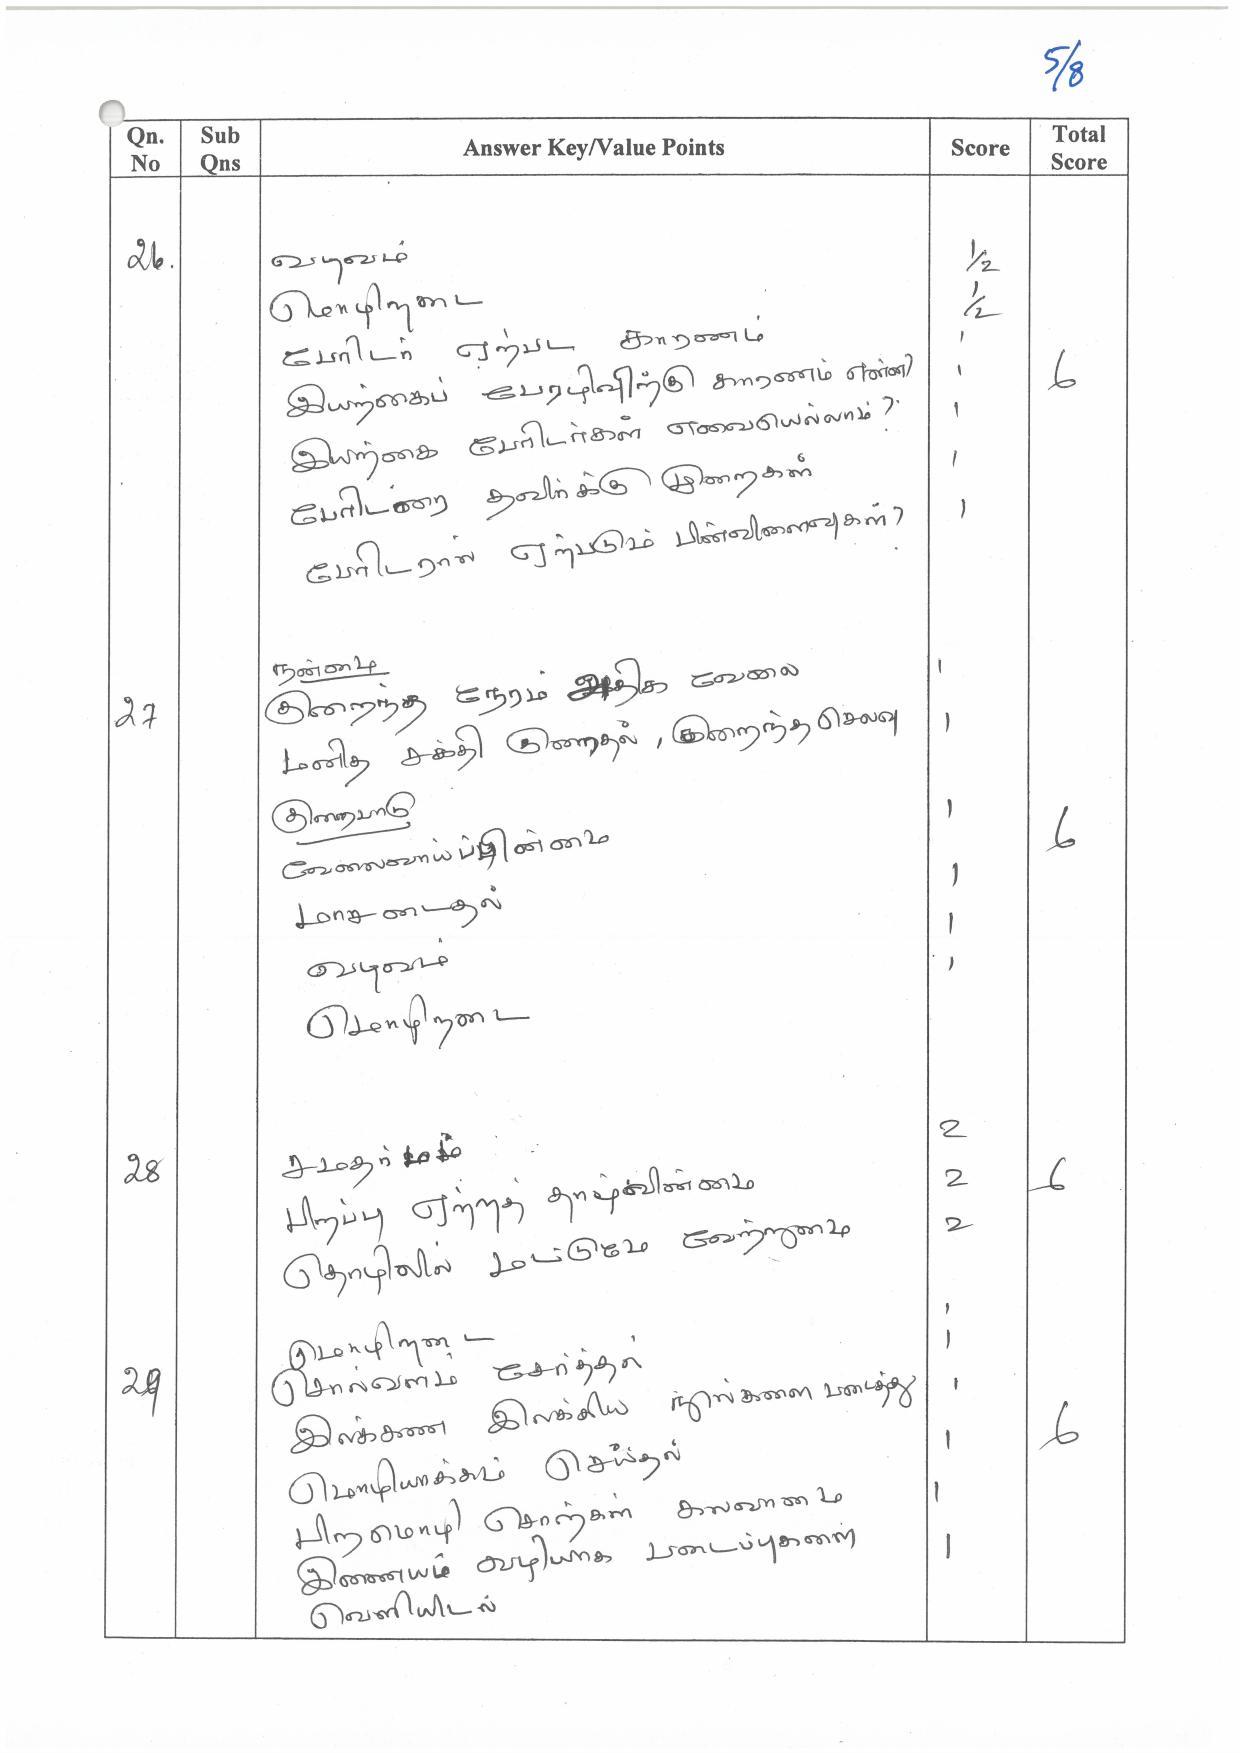 5/8
Qn. No Sub Qns Answer Key/Value Points Score Total Score
26. வடிவம் 1/2
மொழிநடை 1/2
பேரிடர் ஏற்பட காரணம் 1
இயற்கைப் பேரழிவிற்கு காரணம் என்ன? 1 6
இயற்கை பேரிடர்கள் எவையெல்லாம்? 1
பேரிடரை தவிர்க்கு முறைகள் 1
பேரிடரால் ஏற்படும் பின்விளைவுகள்? 1
நன்மை
27 குறைந்த நேரம் அதிக வேலை 1
மனித சக்தி குறைதல், குறைந்த செலவு 1
குறைபாடு 1 6
வேலைவாய்ப்பின்மை 1
மாசடைதல் 1
வடிவம் 1
மொழிநடை
28 சமதர்மம் 2
பிறப்பு ஏற்றத் தாழ்வின்மை 2 6
தொழிலில் மட்டுமே வேற்றுமை 2
மொழிநடை 1
29 சொல்வளம் சேர்த்தல் 1
இலக்கண இலக்கிய நூல்களை படைத்து 1
மொழியாக்கம் செய்தல் 1 6
பிறமொழி சொற்கள் கலவாமை 1
இணையம் வழியாக படைப்புகளை 1
வெளியிடல்